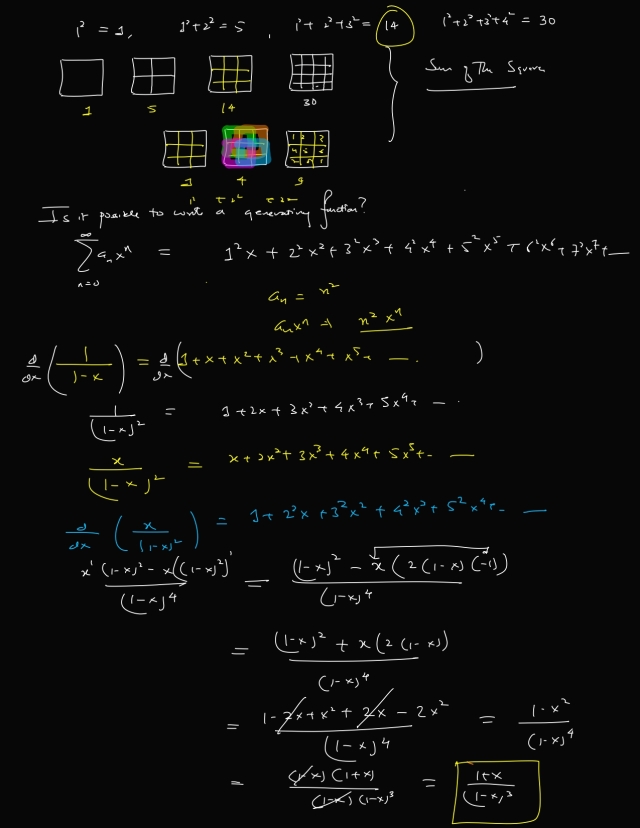 1² = 1, 1²+2² = 5, 1²+2²+3² = 14 1²+2²+3²+4² = 30
Sum of The Square
1 5 14 30
1 4 9
1² + 2² + 3²
Is it possible to write a generating function?
∞
∑ aₙxⁿ = 1²x + 2²x² + 3²x³ + 4²x⁴ + 5²x⁵ + 6²x⁶ + 7²x⁷ + —
n=0
aₙ = n²
aₙxⁿ → n²xⁿ
d/dx (1/(1-x)) = d/dx (1+x+x²+x³+x⁴+x⁵+ — . )
1/(1-x)² = 1+2x+3x²+4x³+5x⁴+ — .
x/(1-x)² = x+2x²+3x³+4x⁴+5x⁵+- —
d/dx (x/(1-x)²) = 1+2²x+3²x²+4²x³+5²x⁴+- —
(x'(1-x)² - x((1-x)²)')/(1-x)⁴ = ((1-x)² - x(2(1-x)(-1)))/(1-x)⁴
= ((1-x)² + x(2(1-x)))/(1-x)⁴
= (1-2x+x²+2x-2x²)/(1-x)⁴ = (1-x²)/(1-x)⁴
= ((1-x)(1+x))/((1-x)(1-x)³) = (1+x)/(1-x)³